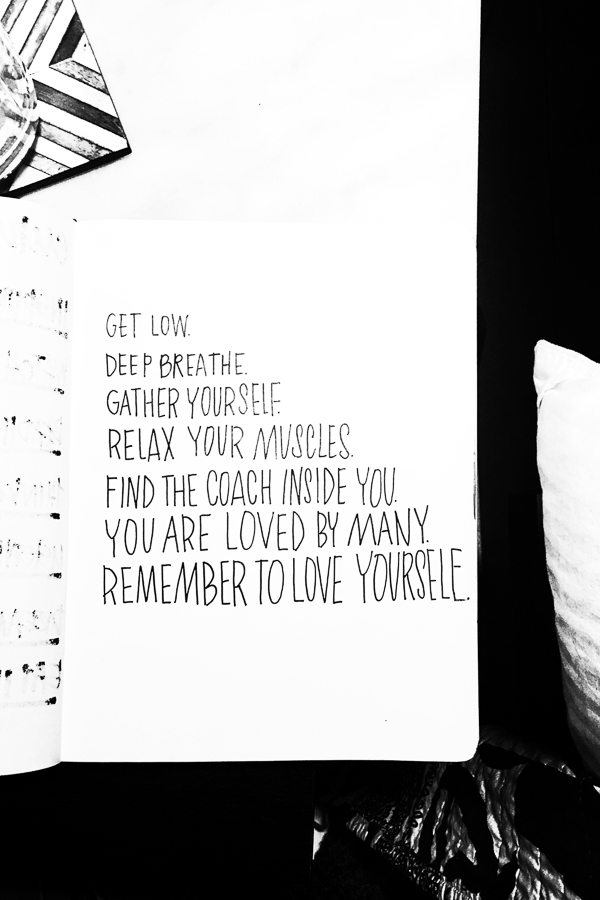 GET LOW.
DEEP BREATHE.
GATHER YOURSELF.
RELAX YOUR MUSCLES.
FIND THE COACH INSIDE YOU.
YOU ARE LOVED BY MANY.
REMEMBER TO LOVE YOURSELF.